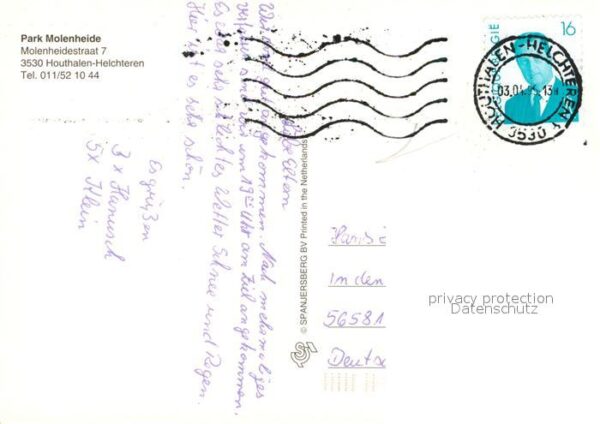 Park Molenheide
Molenheidestraat 7
3530 Houthalen-Helchteren
Tel. 011/52 10 44
BELGIE
16
HOUTHALEN-HELCHTEREN
03.01.95-13H
3530
© SPANJERSBERG BV Printed in the Netherlands
Liebe Eltern
Wir sind gut angekommen. Nach mehrmaliges
sind wir um 13 Uhr am Ziel angekommen.
Es war sehr schlechtes Wetter Schnee und Regen.
Hier ist es sehr schön.
Es grüßen
3 x Hanisch
5 x Klein
In den
56581
Deutsc
privacy protection
Datenschutz